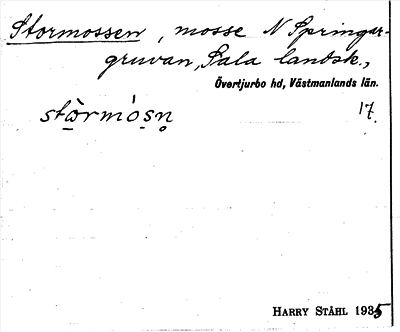 Stormossen, mosse N Springar-
gruvan, Sala landsk.,
Övertjurbo hd, Västmanlands län.
stòrmósn̥ 17.
HARRY STÅHL 1935